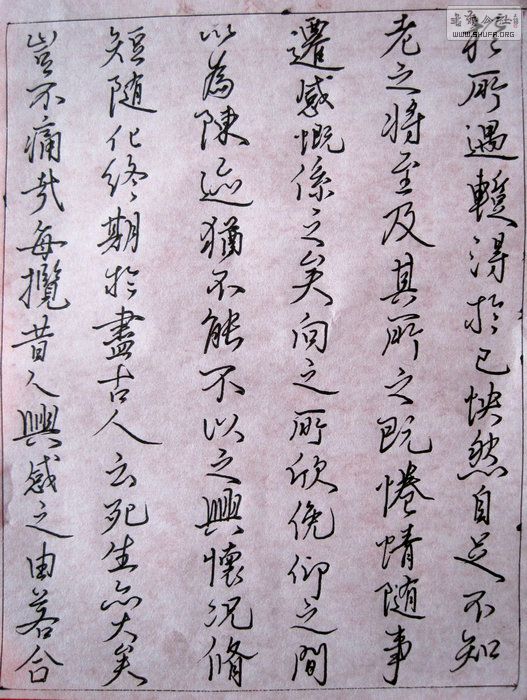 於所遇暫得於己怏然自足不知
老之將至及其所之既惓情隨事
遷感慨係之矣向之所欣俛仰之間
以為陳迹猶不能不以之興懷況脩
短随化終期於盡古人云死生亦大矣
豈不痛哉每攬昔人興感之由若合
WWW.SHUFA.ORG